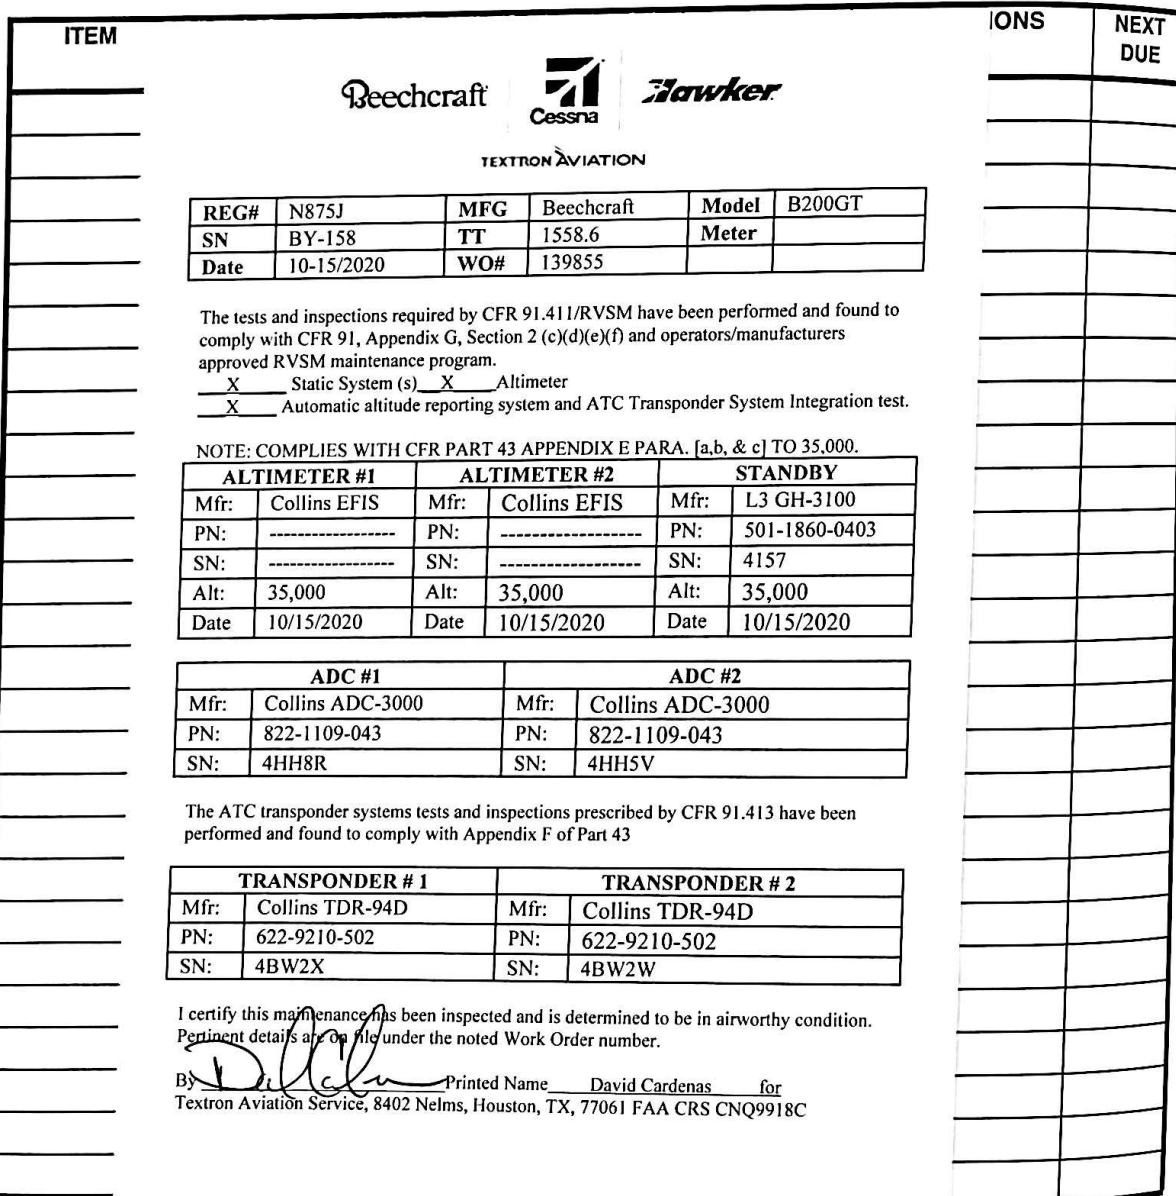 ITEM
IONS
NEXT
DUE
Beechcraft
Cessna
Hawker
TEXTRON AVIATION
REG# N875J MFG Beechcraft Model B200GT
SN BY-158 TT 1558.6 Meter
Date 10-15/2020 WO# 139855
The tests and inspections required by CFR 91.411/RVSM have been performed and found to
comply with CFR 91, Appendix G, Section 2 (c)(d)(e)(f) and operators/manufacturers
approved RVSM maintenance program.
X Static System (s) X Altimeter
X Automatic altitude reporting system and ATC Transponder System Integration test.
NOTE: COMPLIES WITH CFR PART 43 APPENDIX E PARA. [a,b, & c] TO 35,000.
ALTIMETER #1 ALTIMETER #2 STANDBY
Mfr: Collins EFIS Mfr: Collins EFIS Mfr: L3 GH-3100
PN: ------------------ PN: ------------------ PN: 501-1860-0403
SN: ------------------ SN: ------------------ SN: 4157
Alt: 35,000 Alt: 35,000 Alt: 35,000
Date 10/15/2020 Date 10/15/2020 Date 10/15/2020
ADC #1 ADC #2
Mfr: Collins ADC-3000 Mfr: Collins ADC-3000
PN: 822-1109-043 PN: 822-1109-043
SN: 4HH8R SN: 4HH5V
The ATC transponder systems tests and inspections prescribed by CFR 91.413 have been
performed and found to comply with Appendix F of Part 43
TRANSPONDER # 1 TRANSPONDER # 2
Mfr: Collins TDR-94D Mfr: Collins TDR-94D
PN: 622-9210-502 PN: 622-9210-502
SN: 4BW2X SN: 4BW2W
I certify this maintenance has been inspected and is determined to be in airworthy condition.
Pertinent details are on file under the noted Work Order number.
By Printed Name David Cardenas for
Textron Aviation Service, 8402 Nelms, Houston, TX, 77061 FAA CRS CNQ9918C